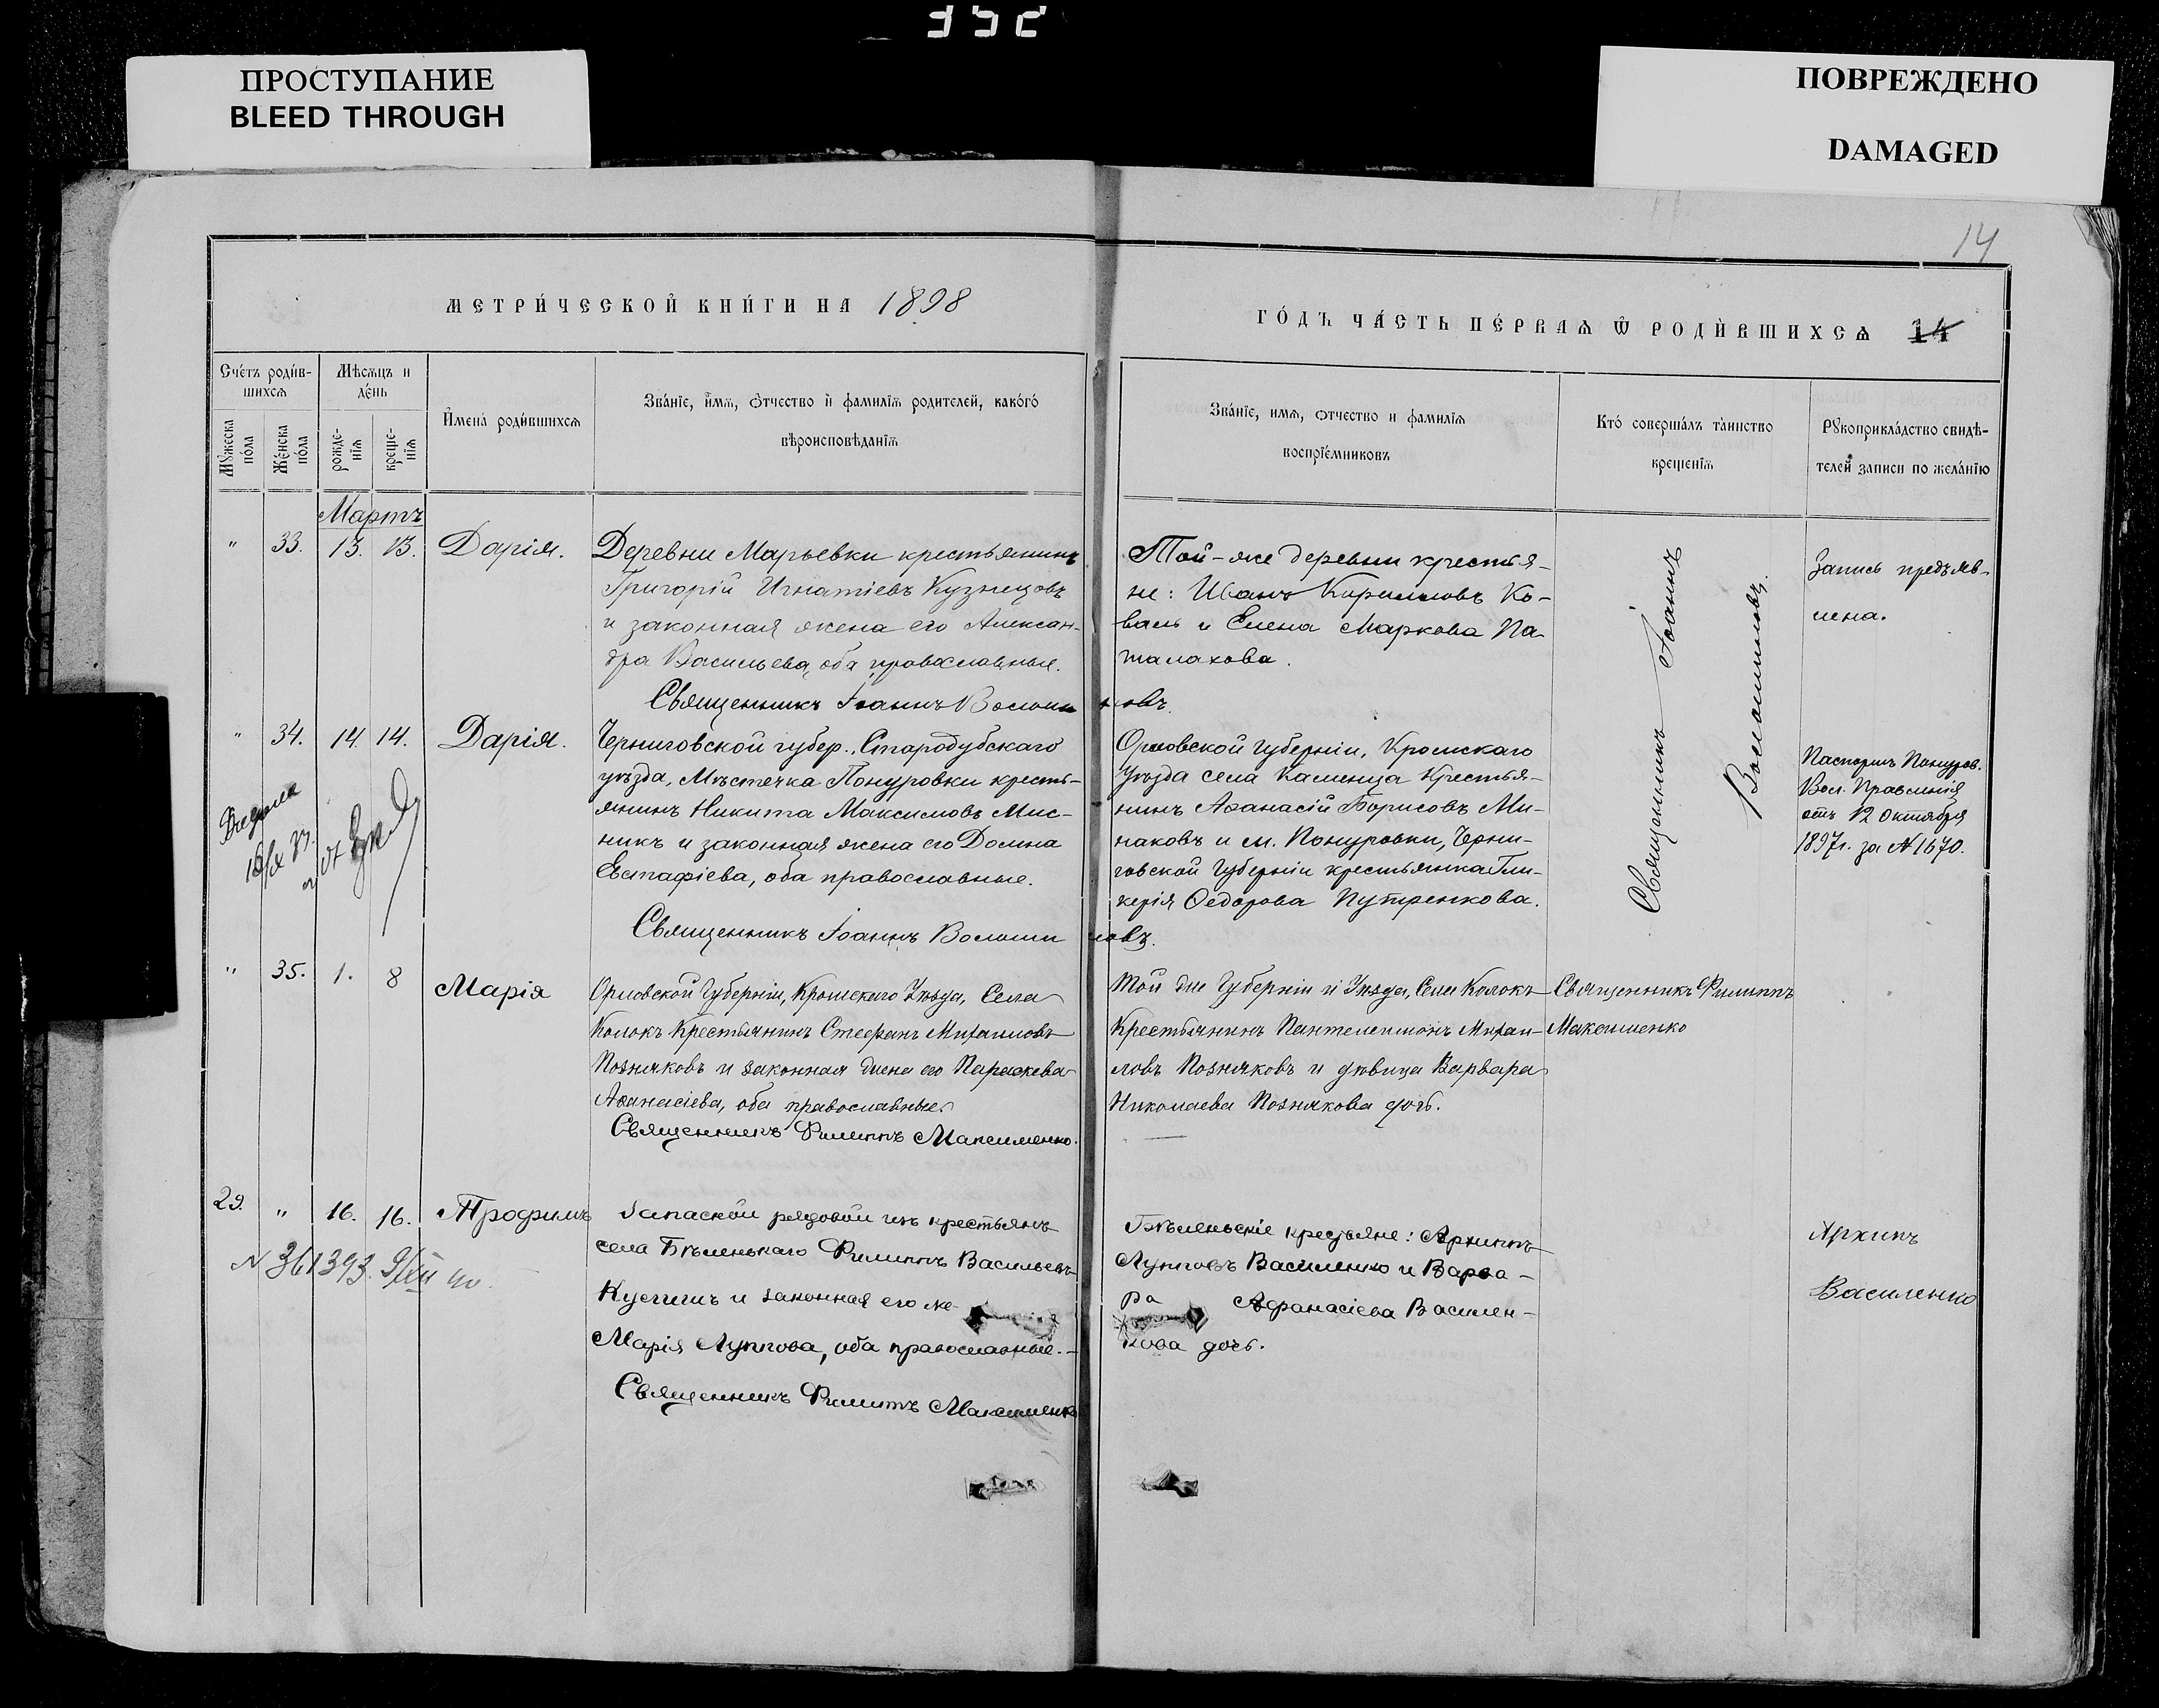 352
ПРОСТУПАНИЕ
BLEED THROUGH
ПОВРЕЖДЕНО
DAMAGED
14
МЕТРИ́ЧЕСКОЙ КНИ́ГИ НА 1898
ГО́ДЪ ЧА́СТЬ ПЕ́РВАѦ Ѿ РОДИ́ВШИХСѦ 14
Сче́тъ роди́в-
шихсѧ
Мѣсѧцъ и
де́нь
Мꙋжеска
по́ла
Же́нска
по́ла
рожде-
нїѧ
креще-
нїѧ
И҆мена́ роди́вшихсѧ
Зва́нїе, и҆́мѧ, ѻ҆́тчество и҆ фамилїѧ родителей, како́гѡ
вѣроисповѣданїѧ
Зва́нїе, имѧ, отчество и фамилїѧ
воспрїе́мниковъ
Кто́ соверша́лъ та́инство
крещенїѧ
Рꙋкоприкла́дство свидѣ-
телей записи по жела́нїю
Мартъ
" 33. 13. 13. Дарія.
Деревни Марьевки крестьянинъ
Григорій Игнатіевъ Кузнецовъ
и законная жена его Алексан-
дра Васильева, оба православные.
Священникъ Іоаннъ Волошиновъ.
Той-же деревни крестья-
не: Иванъ Кирилловъ Ко-
валь и Елена Маркова Па-
талахова.
Священникъ Іоаннъ
Волошиновъ.
Запись предъяв-
лена.
" 34. 14. 14. Дарія.
Черниговской губер., Стародубскаго
уѣзда, Мѣстечка Понуровки кресть-
янинъ Никита Максимовъ Мис-
никъ и законная жена его Домна
Евстафіева, оба православные.
Священникъ Іоаннъ Волошиновъ.
Орловской губерніи, Кромскаго
Уѣзда села Каменца Крестья-
нинъ Аѳанасій Борисовъ Ми-
наковъ и м. Понуровки, Черни-
говской Губерніи крестьянка Гли-
керія Ѳедорова Путренкова.
Паспортъ Понуров.
Вол. Правленія
отъ 12 Октября
1897 г. за № 1670.
" 35. 1. 8 Марія
Орловской Губерніи, Кромскаго Уѣзда, Села
Колокъ Крестьянинъ Стефанъ Михаиловъ
Позняковъ и законная жена его Параскева
Аѳанасіева, оба православные.
Священникъ Филиппъ Максименко.
Той же Губерніи и Уѣзда, Села Колокъ
Крестьянинъ Пантелеимонъ Михаи-
ловъ Позняковъ и дѣвица Варвара
Николаева Познякова дочь.
Священникъ Филиппъ
Максименко
29. " 16. 16. Трофимъ
№ 361393. 9/XII 40.
Запасной рядовой изъ крестьянъ
села Бѣленькаго Филиппъ Васильевъ
и законная его же-
Марія Луппова, оба православные.
Священникъ Филиппъ Максименко
Бѣленьскіе крестьяне: Архиппъ
Лупповъ Василенко и Варва-
ра Афанасіева Василен-
кова дочь.
Архипъ
Василенко